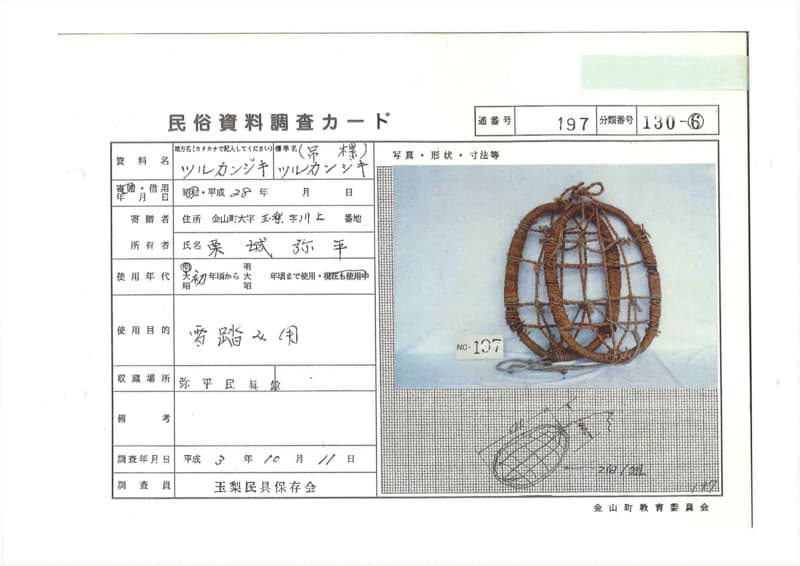 民俗資料調査カード
通番号 197 分類番号 130-⑥
資料名 地方名(カタカナで記入してください) ツルカンジキ 標準名(吊樏) ツルカンジキ
写真・形状・寸法等
寄贈・借用年月日 昭和・平成 28年 月 日
寄贈者 住所 金山町大字玉梨字川上 番地
所有者 氏名 栗城弥平
使用年代 明大昭 初年頃から 明大昭 年頃まで使用・現在も使用中
使用目的 雪踏み用
収蔵場所 弥平民具館
備考
調査年月日 平成 3年 10月 11日
調査員 玉梨民具保存会
NO. 197
2個1組
197
金山町教育委員会